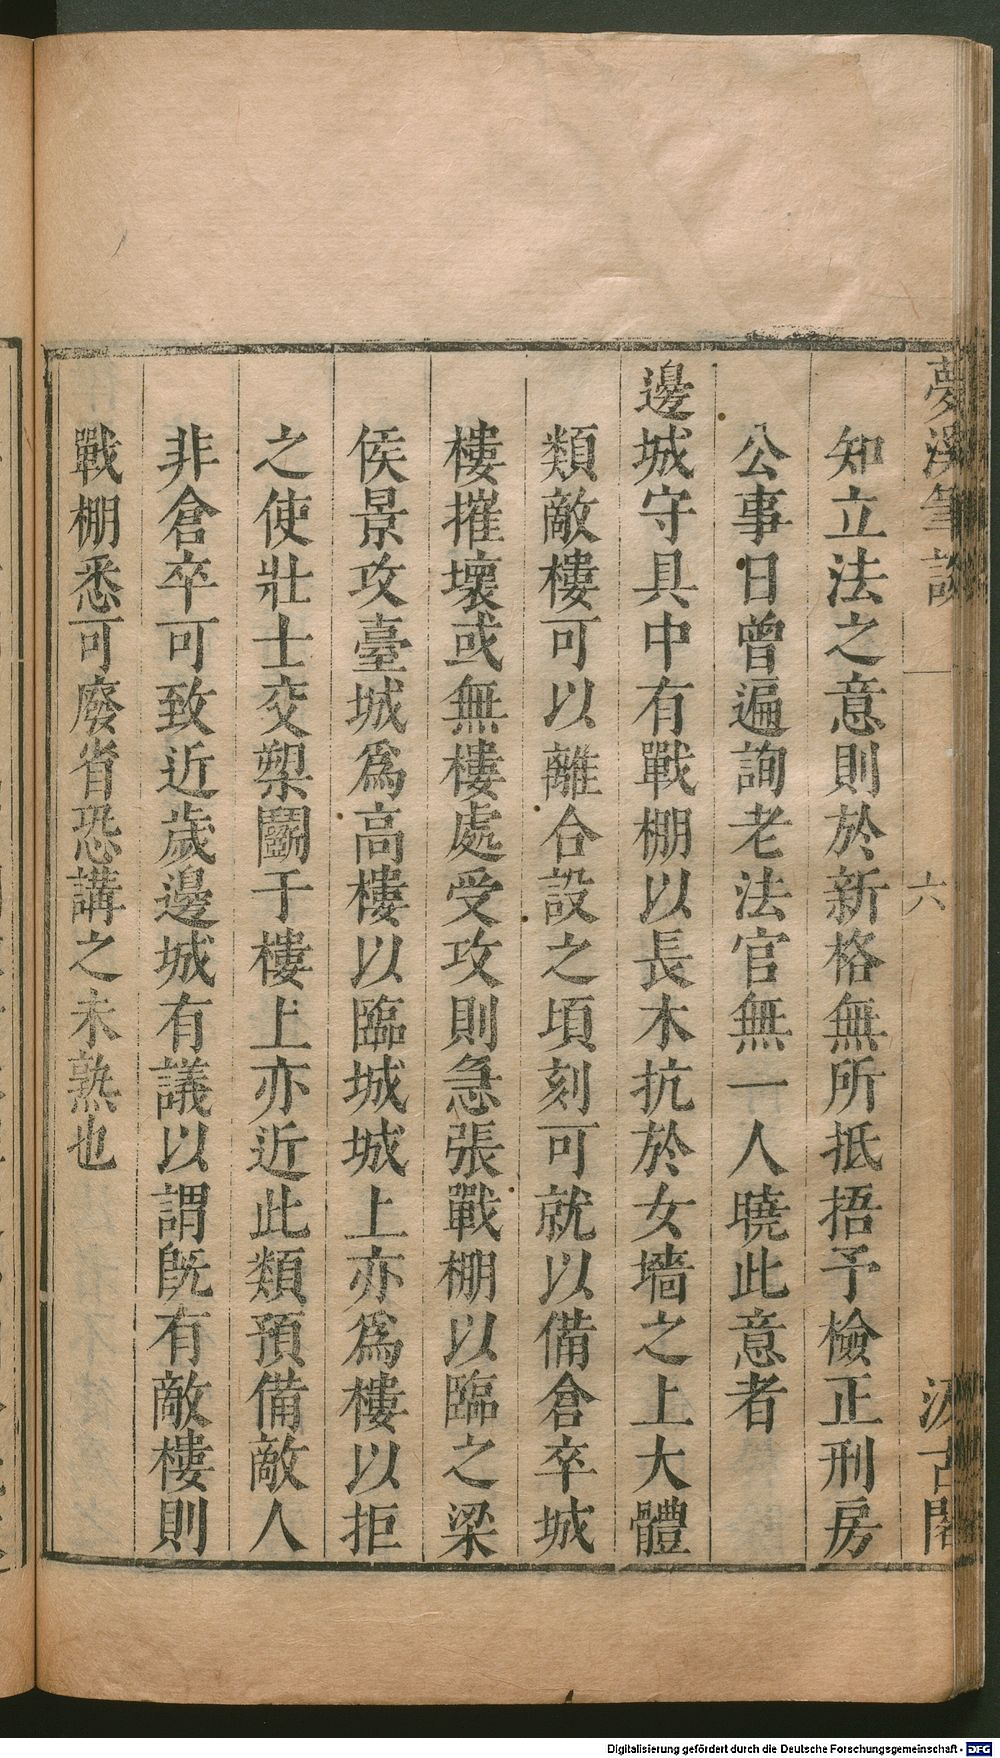 夢溪筆談
六
汲古閣
知立法之意則於新格無所抵捂予檢正刑房
公事日曾遍詢老法官無一人曉此意者
邊城守具中有戰棚以長木抗於女墻之上大體
類敵樓可以離合設之頃刻可就以備倉卒城
樓摧壞或無樓處受攻則急張戰棚以臨之梁
侯景攻臺城為高樓以臨城城上亦為樓以拒
之使壯士交槊鬭于樓上亦近此類預備敵人
非倉卒可致近歲邊城有議以謂旣有敵樓則
戰棚悉可廢省恐講之未熟也
Digitalisierung gefördert durch die Deutsche Forschungsgemeinschaft - DFG